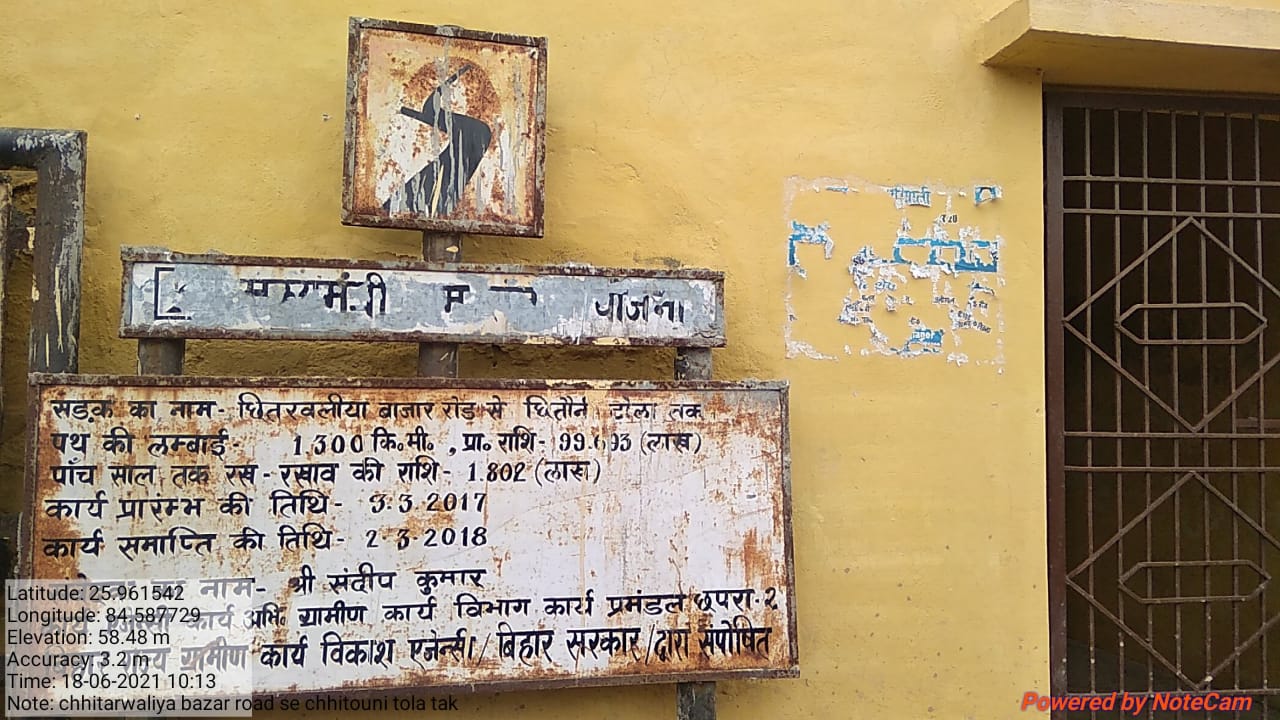 योजना
सड़क का नाम- छितरवलीया बाजार रोड़ से छितौनी टोला तक
पथ की लम्बाई- 1.300 कि०मी० , प्रा० राशि- 99.693 (लाख)
पाँच साल तक रख-रखाव की राशि- 1.802 (लाख)
कार्य प्रारम्भ की तिथि- 3.3.2017
कार्य समाप्ति की तिथि- 2.3.2018
नाम- श्री संदीप कुमार
कार्य अभि० ग्रामीण कार्य विभाग कार्य प्रमंडल छपरा-2
ग्रामीण कार्य विकाश एजेन्सी/बिहार सरकार/द्वारा संपोषित
Latitude: 25.961542
Longitude: 84.587729
Elevation: 58.48 m
Accuracy: 3.2 m
Time: 18-06-2021 10:13
Note: chhitarwaliya bazar road se chhitouni tola tak
Powered by NoteCam